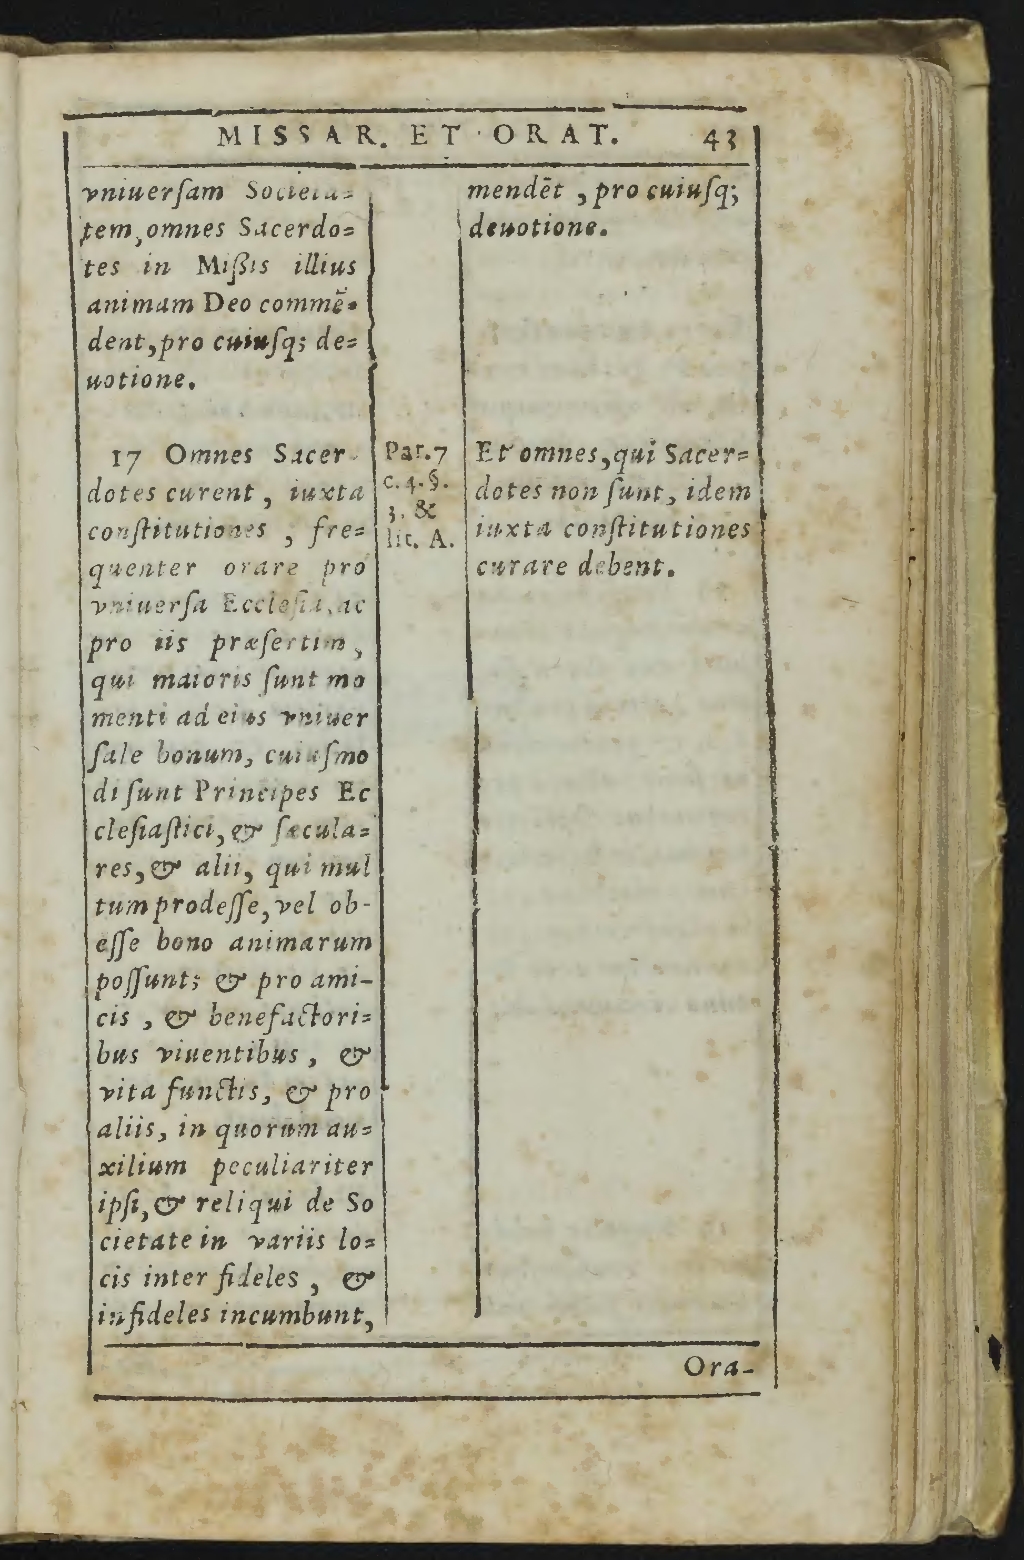 MISSAR. ET ORAT. 43
vniuerſam Societa=
tem, omnes Sacerdo=
tes in Mißis illius
animam Deo commē=
dent, pro cuiuſq; de=
uotione.
17 Omnes Sacer
dotes curent, iuxta
conſtitutiones, fre=
quenter orare pro
vniuerſa Eccleſia, ac
pro iis præſertim,
qui maioris ſunt mo
menti ad eius vniuer
ſale bonum, cuiuſmo
di ſunt Principes Ec
cleſiaſtici, & ſæcula=
res, & alii, qui mul
tum prodeſſe, vel ob-
eſſe bono animarum
poſſunt; & pro ami-
cis, & benefactori=
bus viuentibus, &
vita functis, & pro
aliis, in quorum au=
xilium peculiariter
ipſi, & reliqui de So
cietate in variis lo=
cis inter fideles, &
infideles incumbunt,
Par. 7
c. 4. §.
3. &
lit. A.
mendēt, pro cuiuſq;
deuotione.
Et omnes, qui Sacer=
dotes non ſunt, idem
iuxta conſtitutiones
curare debent.
Ora-